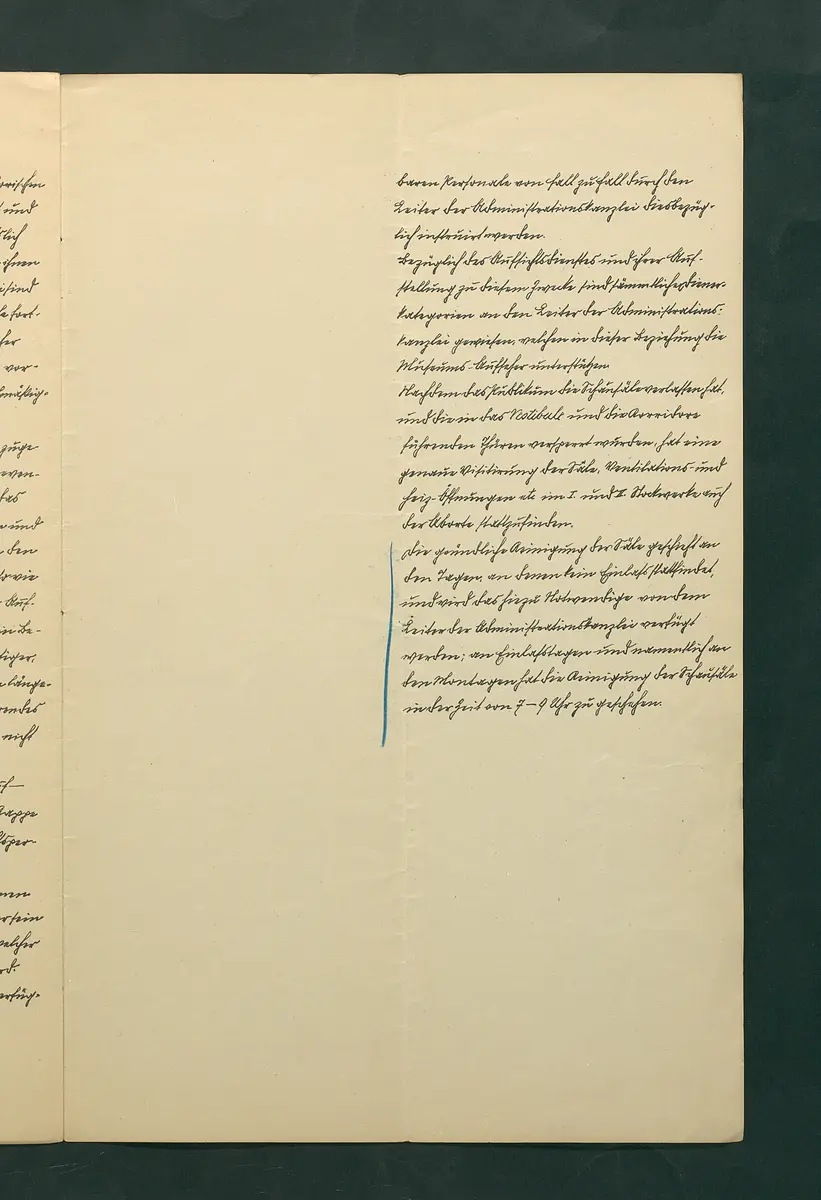 orischen
und
lich
ihnen
sind
fort-
her
vor-
mäßig-
züge
even-
das
und
den
sowie
Auf-
in Be-
tiger,
länge-
rendes
nicht
uf—
Kappe
tsper-
nen
er sein
welcher
rd.
erfüg-
baren Personale von Fall zu Fall durch den
Leiter der Administrationskanzlei diesbezüg-
lich instruirt werden.
Bezüglich des Aufsichtsdienstes und ihrer Auf-
stellung zu diesem Zwecke sind sämmtliche Diener-
kategorien an den Leiter der Administrations-
kanzlei gewiesen, welchen in dieser Beziehung die
Museums-Aufseher unterstützen.
Nachdem das Publikum die Schausäle verlassen hat,
und die in das Vestibule und die Korridore
führenden Thüren versperrt wurden, hat eine
genaue Visitirung der Säle, Ventilations- und
Heiz-Öffnungen etc im I. und II. Stockwerke auch
der Aborte stattzufinden.
Die gründliche Reinigung der Säle geschieht an
den Tagen, an denen kein Einlaß stattfindet,
und wird das hiezu Notwendige von dem
Leiter der Administrationskanzlei verfügt
werden; an Einlaßtagen und namentlich an
den Montagen hat die Reinigung der Schausäle
in der Zeit von 7–9 Uhr zu geschehen.